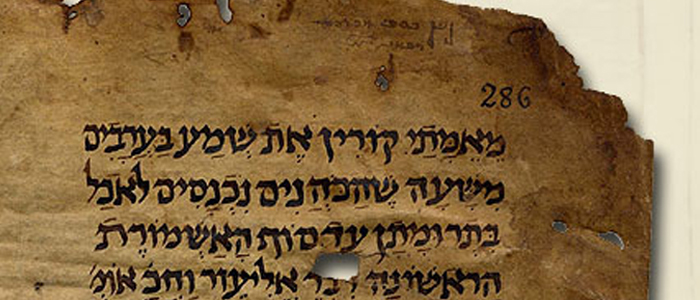 286
מאמתי קורין את שמע בערבים
משעה שהכהנים נכנסים לאכל
בתרומתן עד סוף האשמורת
הראשונה אליעזר וחכ אומ